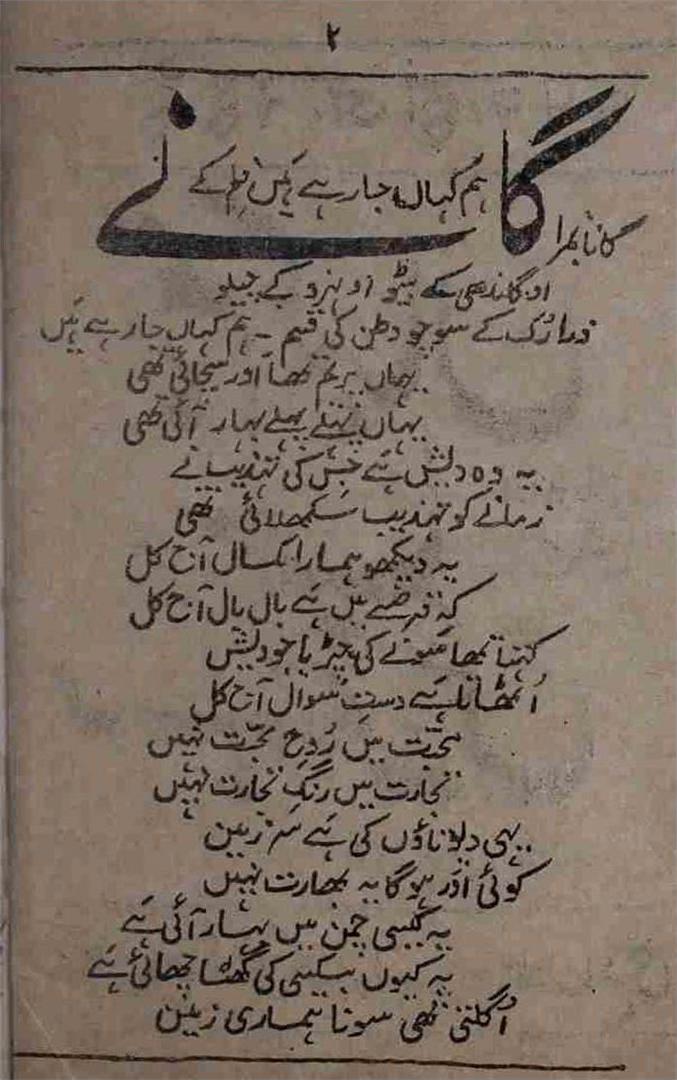 ۲
ہم کہاں جا رہے ہیں فلم کے
گانے
گانا نمبر ا
او گاندھی کے بیٹو او نہرو کے چیلو
ذرا رُک کے سوچو وطن کی قسم ۔ ہم کہاں جا رہے ہیں
یہاں پریم تھا اور سچائی تھی
یہاں پہلے پہلے بہار آئی تھی
یہ وہ دیش ہے جس کی تہذیب نے
زمانے کو تہذیب سکھلائی تھی
یہ دیکھو ہمارا کمال آج کل
کہ قرضے میں ہے بال بال آج کل
کہتا تھا سونے کی چڑیا جو دیش
اُٹھائے ہے دستِ سوال آج کل
محبّت میں رُوحِ محبّت نہیں
تجارت میں رنگِ تجارت نہیں
یہی دیوتاؤں کی ہے سرزمین
کوئی اور ہوگا یہ بھارت نہیں
یہ کیسی چمن میں بہار آئی ہے
یہ کیوں بیکسی کی گھٹا چھائی ہے
اُگلتی تھی سونا ہماری زمین